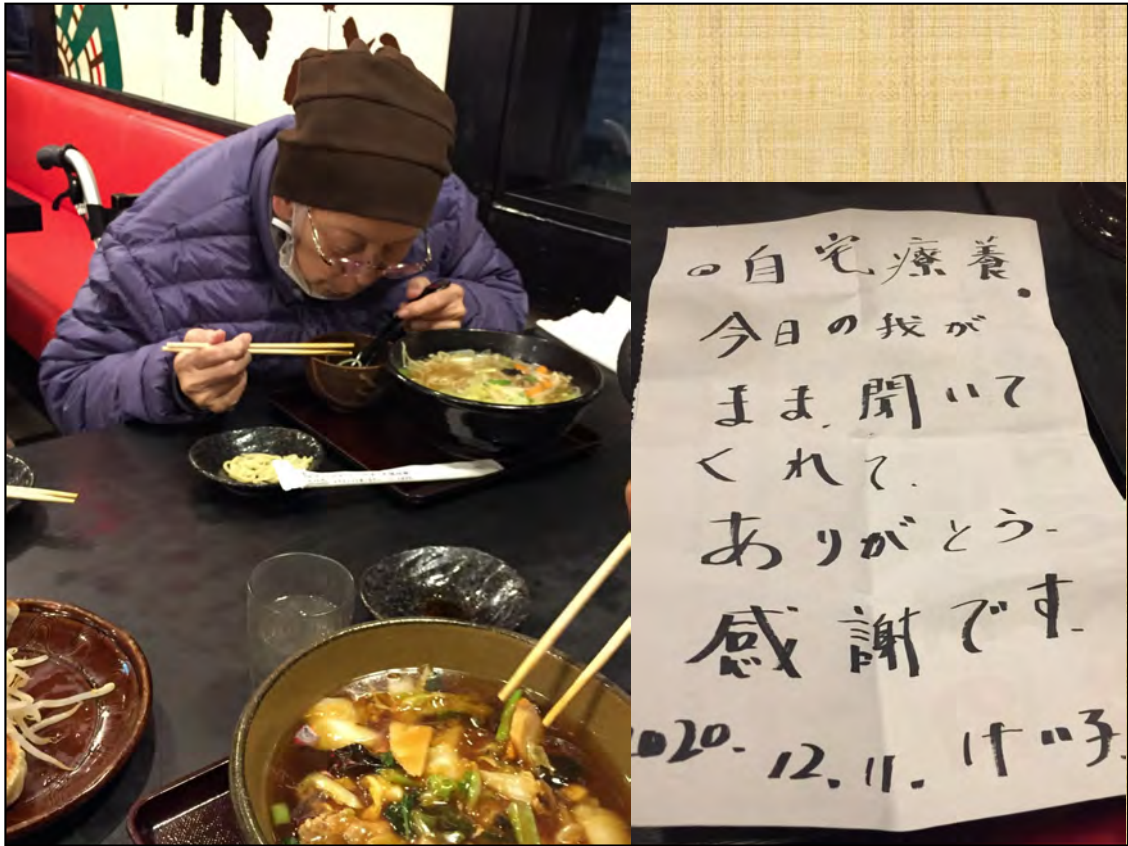 ◎自宅療養.
今日の我が
まま.聞いて
くれて.
ありがとう.
感謝です.
2020.12.11.けい子.